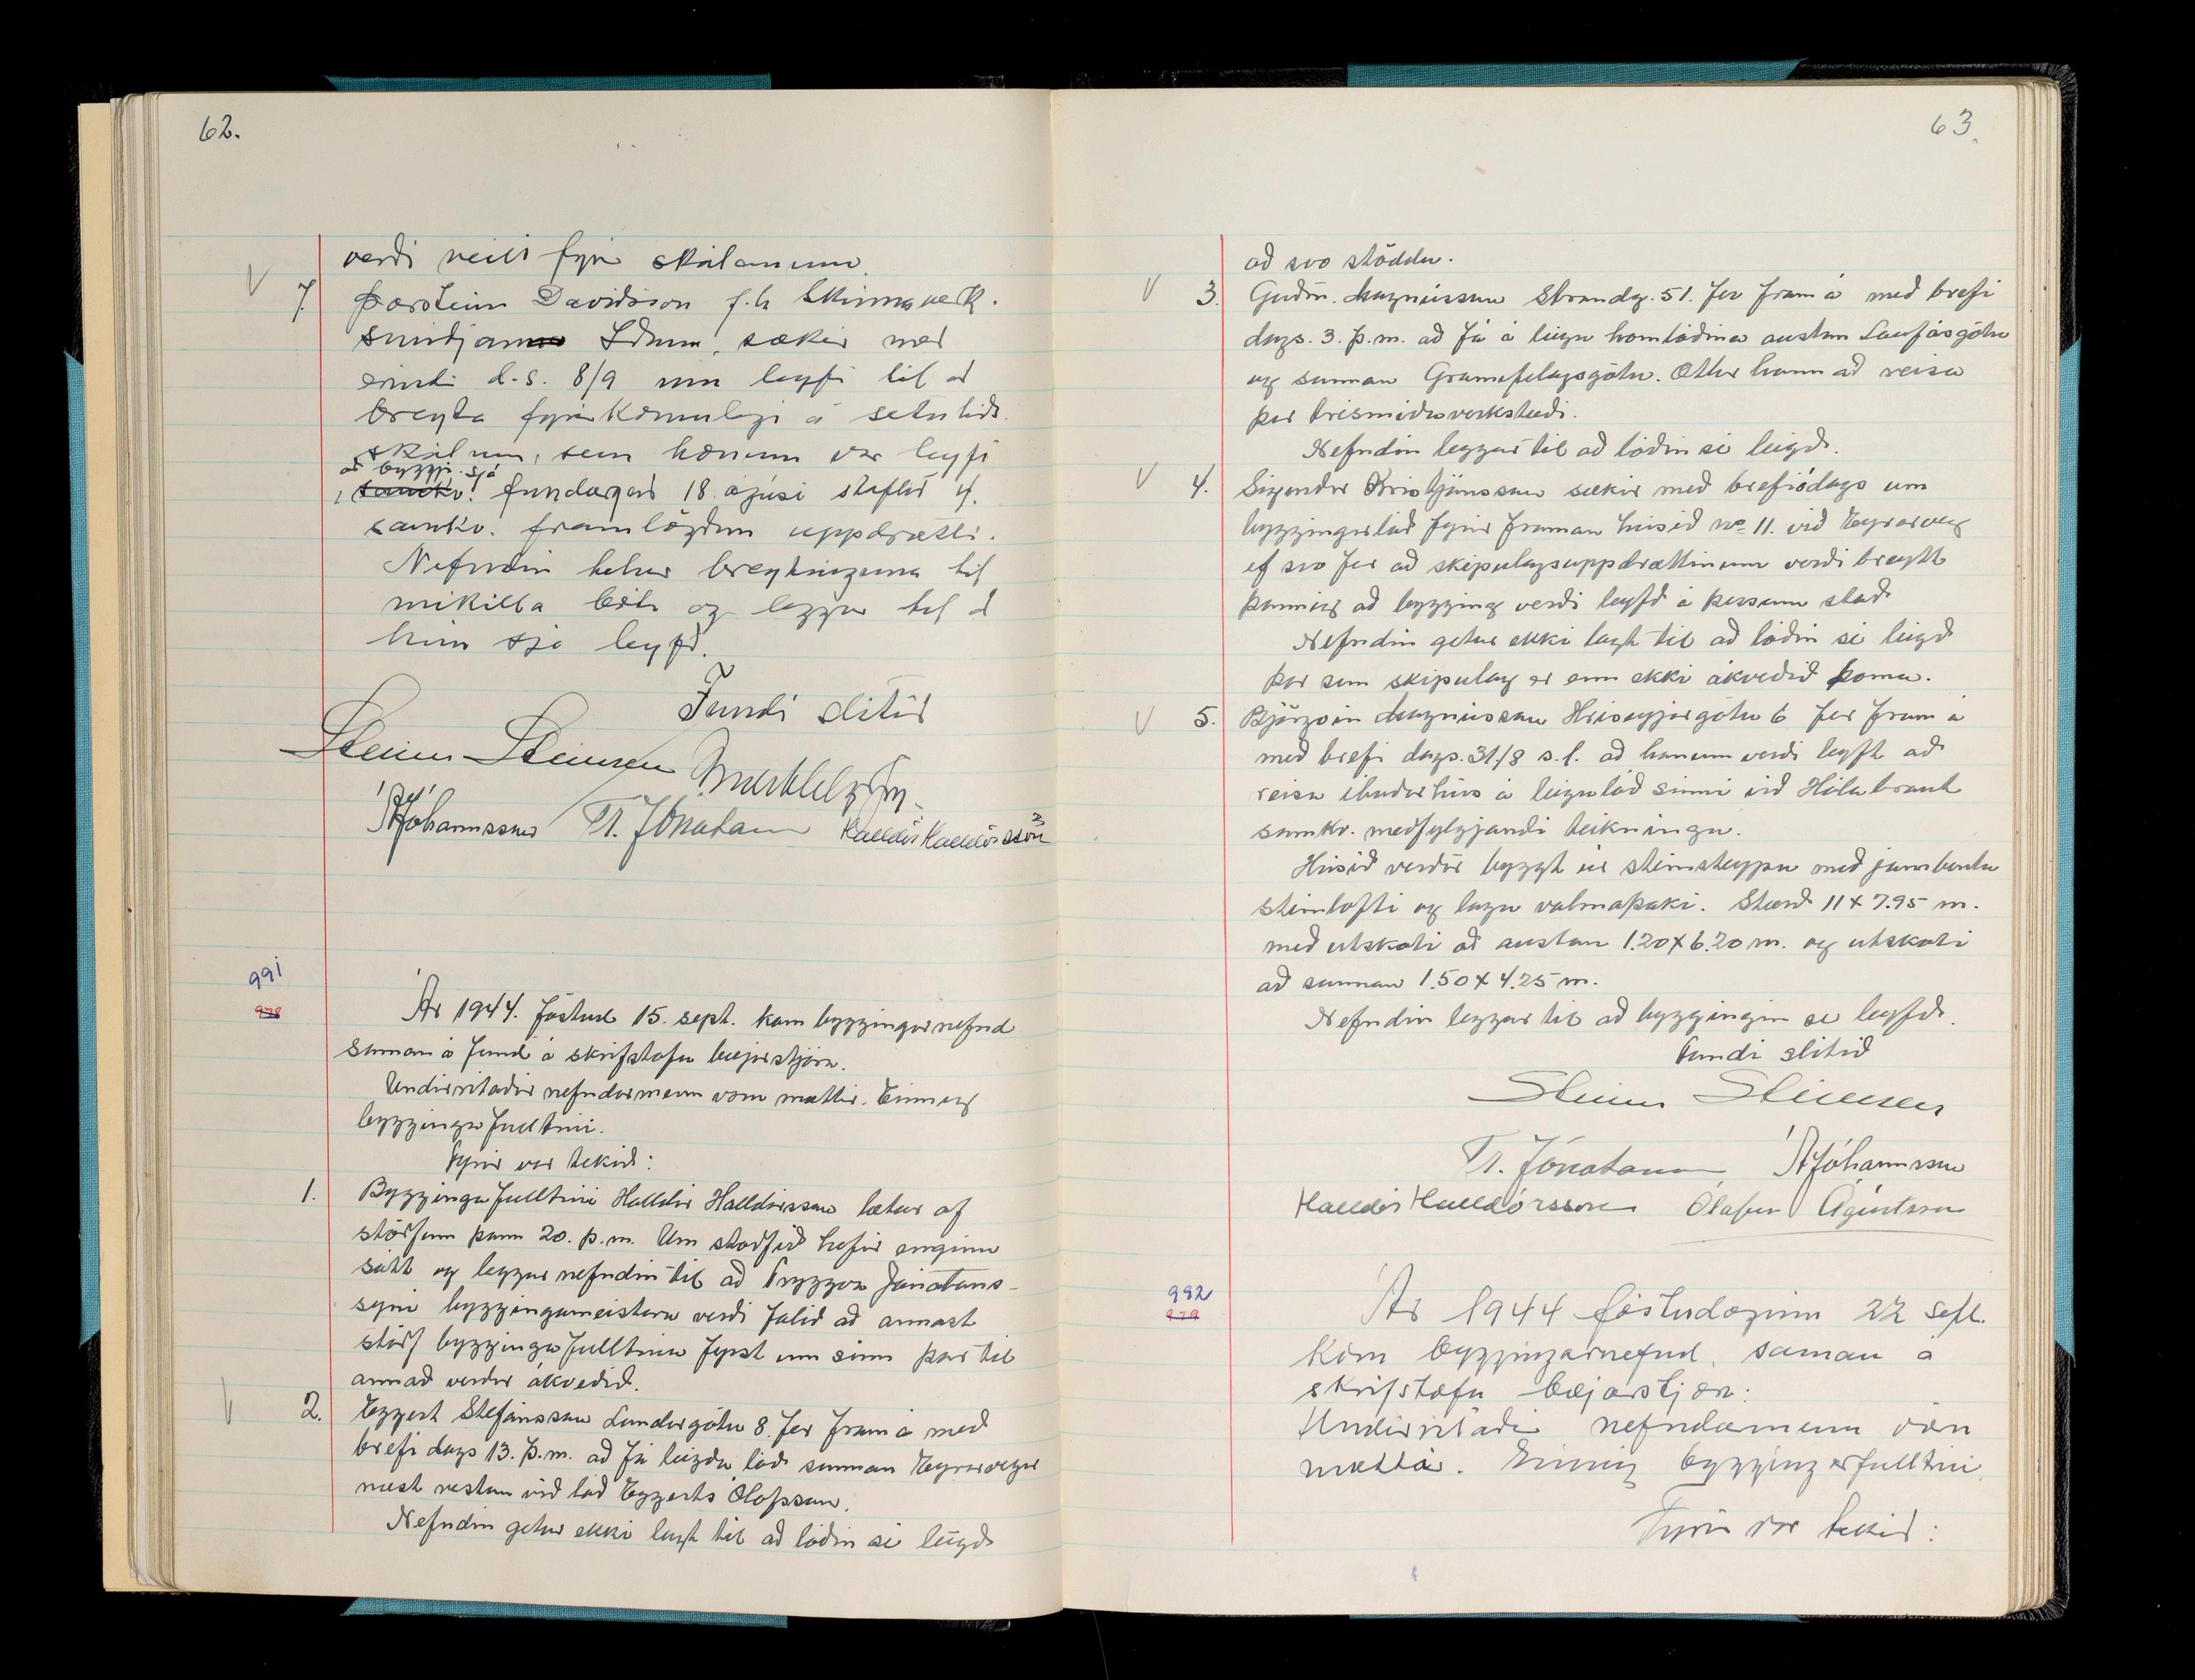 62.
verði veitt fyrir skálanum.
7. Þorsteinn Davíðsson f.h. Skinnaverk-
smiðjan Iðunn, sækir með
erindi d.s. 8/9 um leyfi til að
breyta fyrirkomulagi á setuliðs-
skálum, sem honum var leyft
að byggja. sjá
fundargerð 18. ágúst staflið 4.
samkv. framlögðum uppdrætti.
Nefndin telur breytinguna til
mikilla bóta og leggur til að
hún sje leyfð.
Fundi slitið
Steinn Steinsen
Jóhannsson Tr. Jónatansson Halldór Halldórsson
991
978
Ár 1944. föstud 15. sept. kom byggingarnefnd
saman á fund á skrifstofu bæjarstjóra.
Undirritaðir nefndarmenn voru mættir. Einnig
byggingafulltrúi.
Fyrir var tekið:
1. Byggingafulltrúi Halldór Halldórsson lætur af
störfum þann 20. þ.m. Um starfið hefir enginn
sótt og leggur nefndin til að Tryggva Jónatans-
syni byggingameistara verði falið að annast
störf byggingafulltrúa fyrst um sinn þar til
annað verður ákveðið.
2. Eggert Stefánsson Lundargötu 8. fer fram á með
brefi dags 13. þ.m. að fá leigða lóð sunnan Eyrarvegar
næst vestan við lóð Eggerts Ólafssonar.
Nefndin getur ekki lagt til að lóðin sé leigð
63.
að svo stöddu.
3. Guðm. Magnússon Strandg. 51. fer fram á með brefi
dags. 3. þ.m. að fá á leigu hornlóðina austan Laufásgötu
og sunnan Gránufelagsgötu. Ætlar hann að reisa
þar trésmíðaverkstæði.
Nefndin leggur til að lóðin sé leigð.
4. Sigurður Kristjánsson sækir með brefi ódags um
byggingarlóð fyrir framan húsið no 11. við Eyrarveg
ef svo fer að skipulagsuppdrættinum verði breytt
þannig að bygging verði leyfð á þessum stað.
Nefndin getur ekki lagt til að lóðin sé leigð
þar sem skipulag er enn ekki ákveðið þarna.
5. Björgvin Magnússon Hríseyjargötu 6 fer fram á
með brefi dags. 31/8 s.l. að honum verði leyft að
reisa íbúðarhús á leigulóð sinni við Hólabraut
samkv. meðfylgjandi teikningu.
Húsið verður byggt úr steinsteypu með járnbentu
steinlofti og lágu valmaþaki. Stærð 11 x 7.95 m.
með útskoti að austan 1.20 x 6.20 m. og útskoti
að sunnan 1.50 x 4.25 m.
Nefndin leggur til að byggingin sé leyfð.
Fundi slitið
Steinn Steinsen
Tr. Jónatansson Jóhannsson
Halldór Halldórsson Ólafur Ágústsson
992
979
Ár 1944 föstudaginn 22 sept.
kom byggingarnefnd saman á
skrifstofu bæjarstjóra:
Undirritaðir nefndarmenn voru
mættir. Einnig byggingarfulltrúi.
Fyrir var tekið: